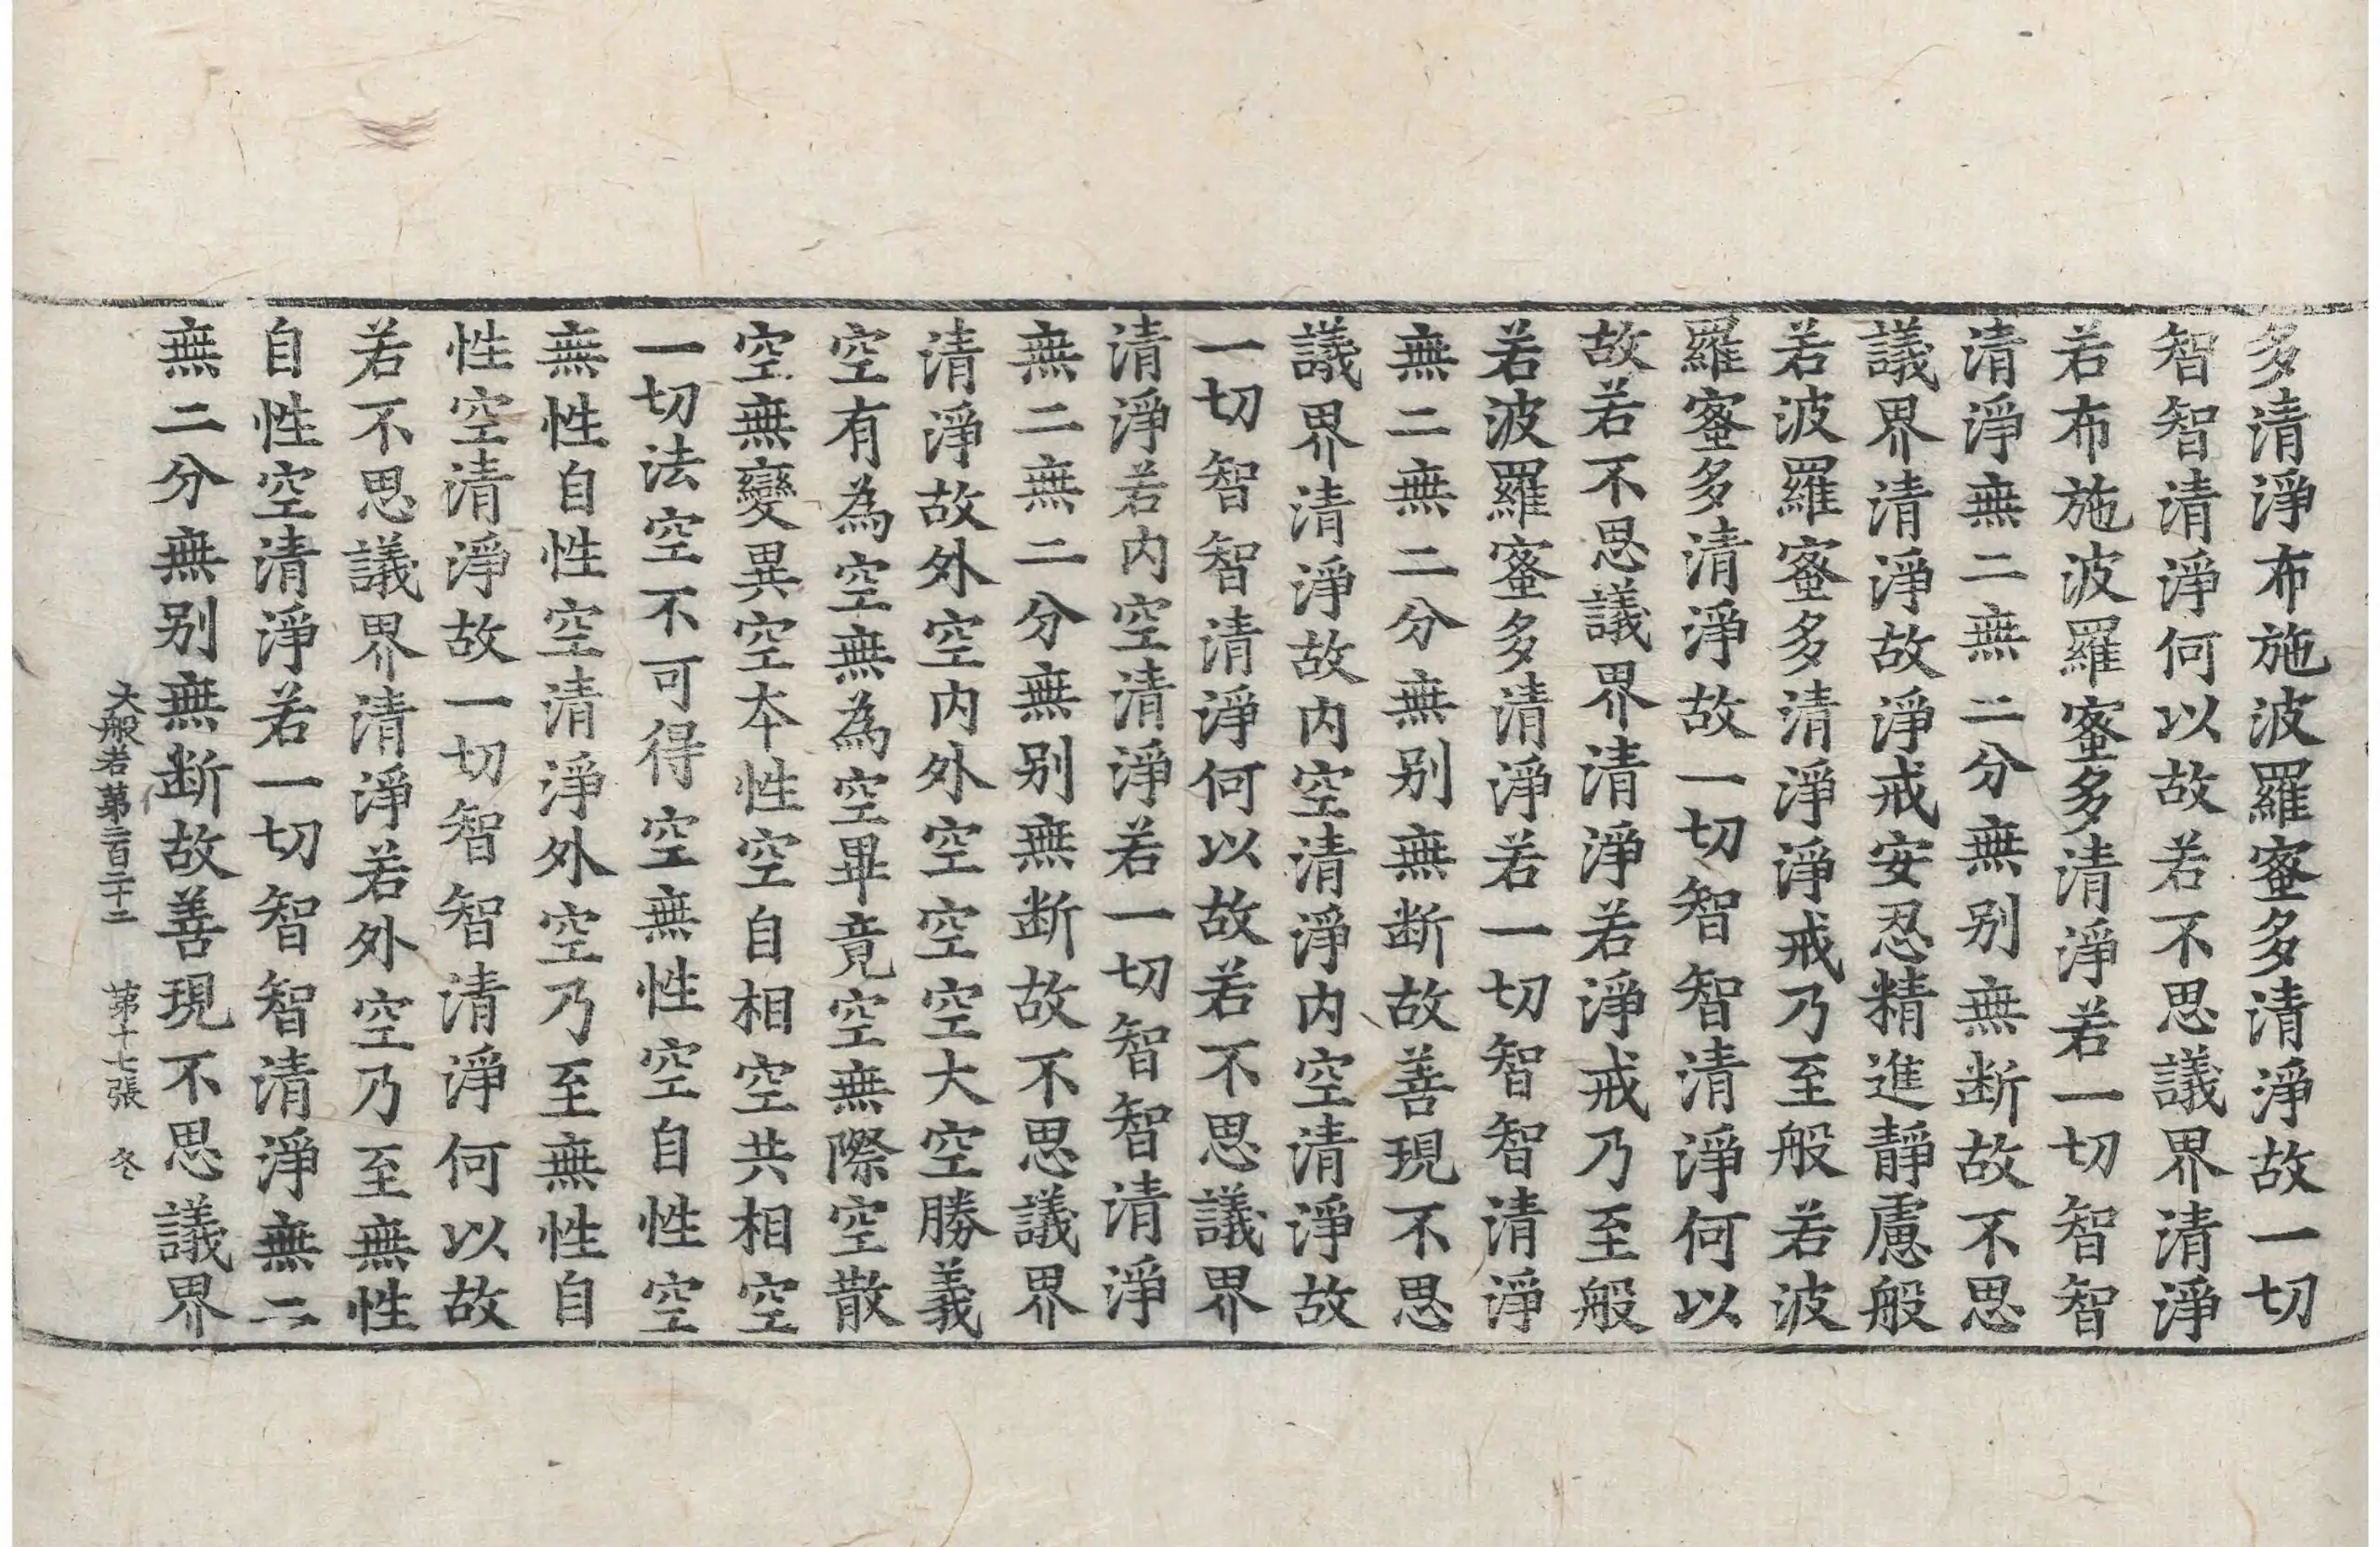 多清淨布施波羅蜜多清淨故一切
智智清淨何以故若不思議界清淨
若布施波羅蜜多清淨若一切智智
清淨無二無二分無别無断故不思
議界清淨故淨戒安忍精進靜慮般
若波羅蜜多清淨淨戒乃至般若波
羅蜜多清淨故一切智智清淨何以
故若不思議界清淨若淨戒乃至般
若波羅蜜多清淨若一切智智清淨
無二無二分無别無断故善現不思
議界清淨故内空清淨内空清淨故
一切智智清淨何以故若不思議界
清淨若内空清淨若一切智智清淨
無二無二分無别無断故不思議界
清淨故外空内外空空空大空勝義
空有為空無為空畢竟空無際空散
空無變異空本性空自相空共相空
一切法空不可得空無性空自性空
無性自性空清淨外空乃至無性自
性空清淨故一切智智清淨何以故
若不思議界清淨若外空乃至無性
自性空清淨若一切智智清淨無二
無二分無别無断故善現不思議界
大般若第二百二十二 第十七張 冬